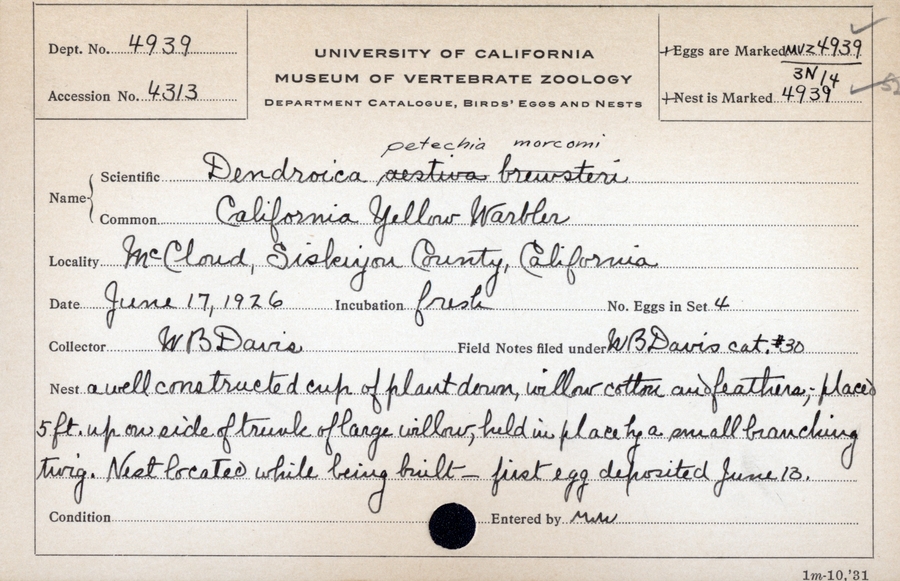 Dept. No. 4939
Accession No. 4313
UNIVERSITY OF CALIFORNIA
MUSEUM OF VERTEBRATE ZOOLOGY
DEPARTMENT CATALOGUE, BIRDS' EGGS AND NESTS
Eggs are Marked MVZ 4939
3N/4
Nest is Marked 4939
petechia morcomi
Name Scientific Dendroica aestiva brewsteri
Common California Yellow Warbler
Locality McCloud, Siskiyou County, California
Date June 17, 1926 Incubation fresh No. Eggs in Set 4
Collector W B Davis Field Notes filed under W B Davis cat. #30
Nest a well constructed cup of plant down, willow cotton and feathers; - placed
5 ft. up on side of trunk of large willow, held in place by a small branching
twig. Nest located while being built — first egg deposited June 13.
Condition Entered by
1m-10,'31